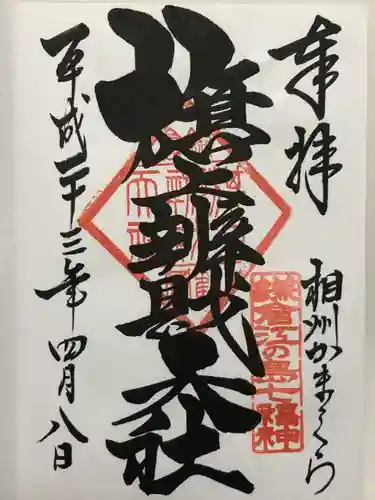 奉拝
相州かまくら
旗上辨財天社
鎌倉江の島七福神
平成二十三年四月八日